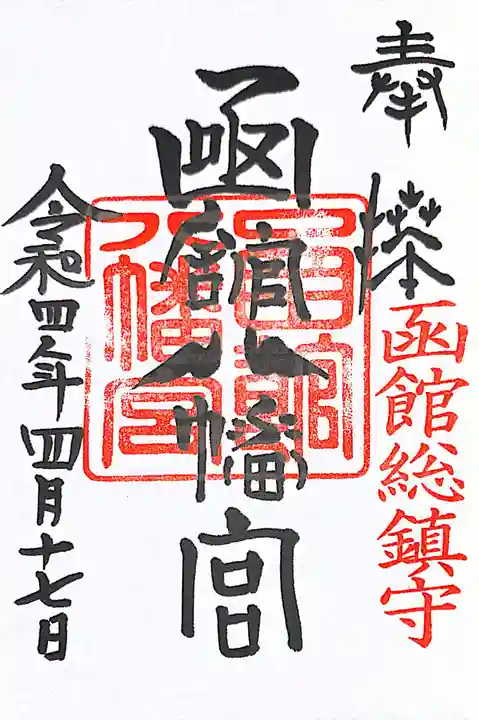 奉拝
函館総鎮守
函館八幡宮
令和四年四月十七日
函館
八幡宮